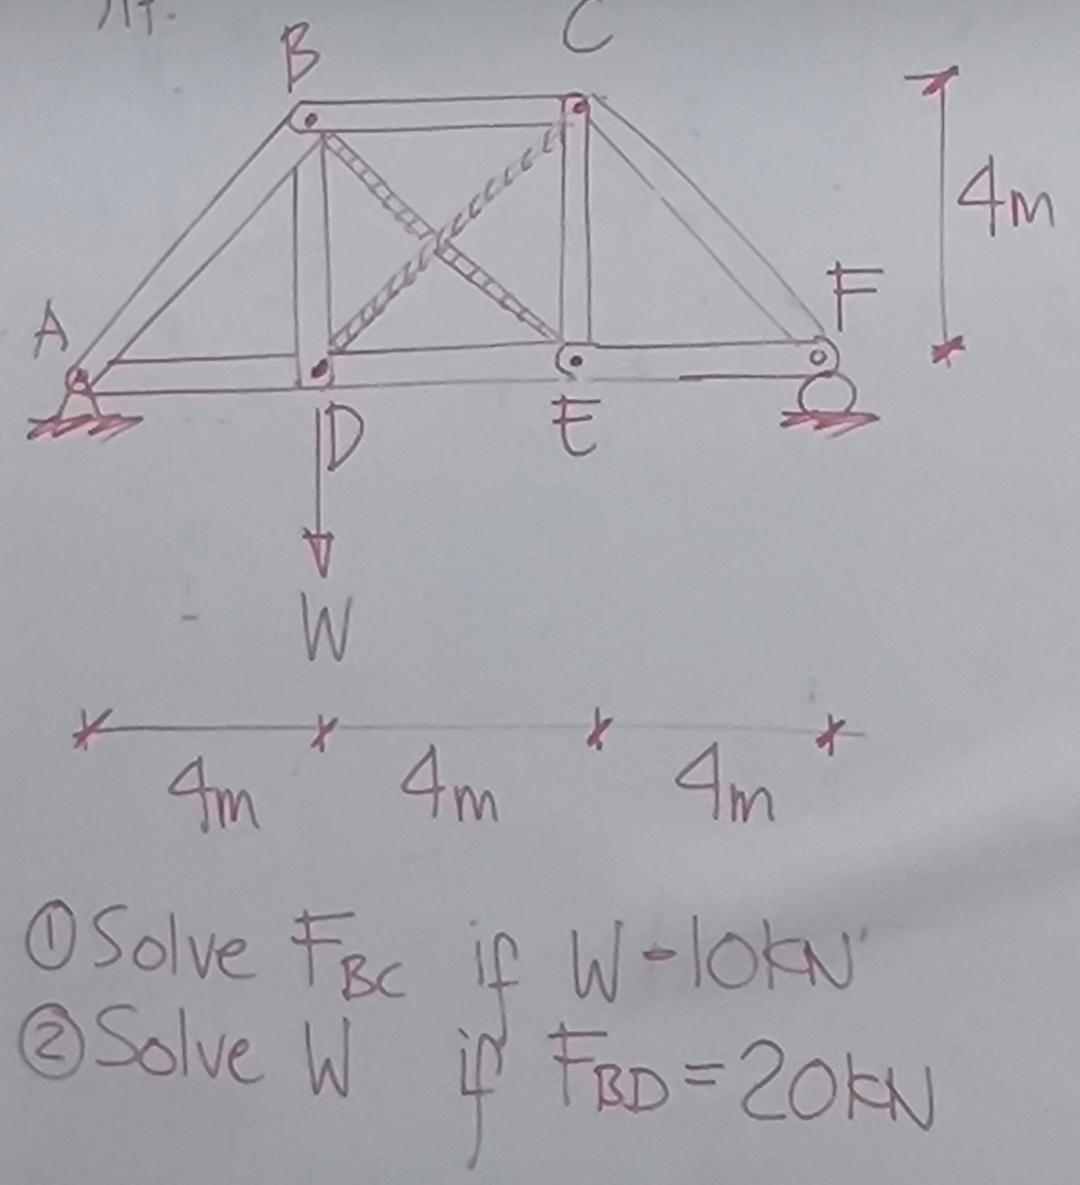 B
C
4m
A
F
D
E
W
4m
4m
4m
① Solve F_BC if W-10kN
② Solve W if F_BD = 20kN